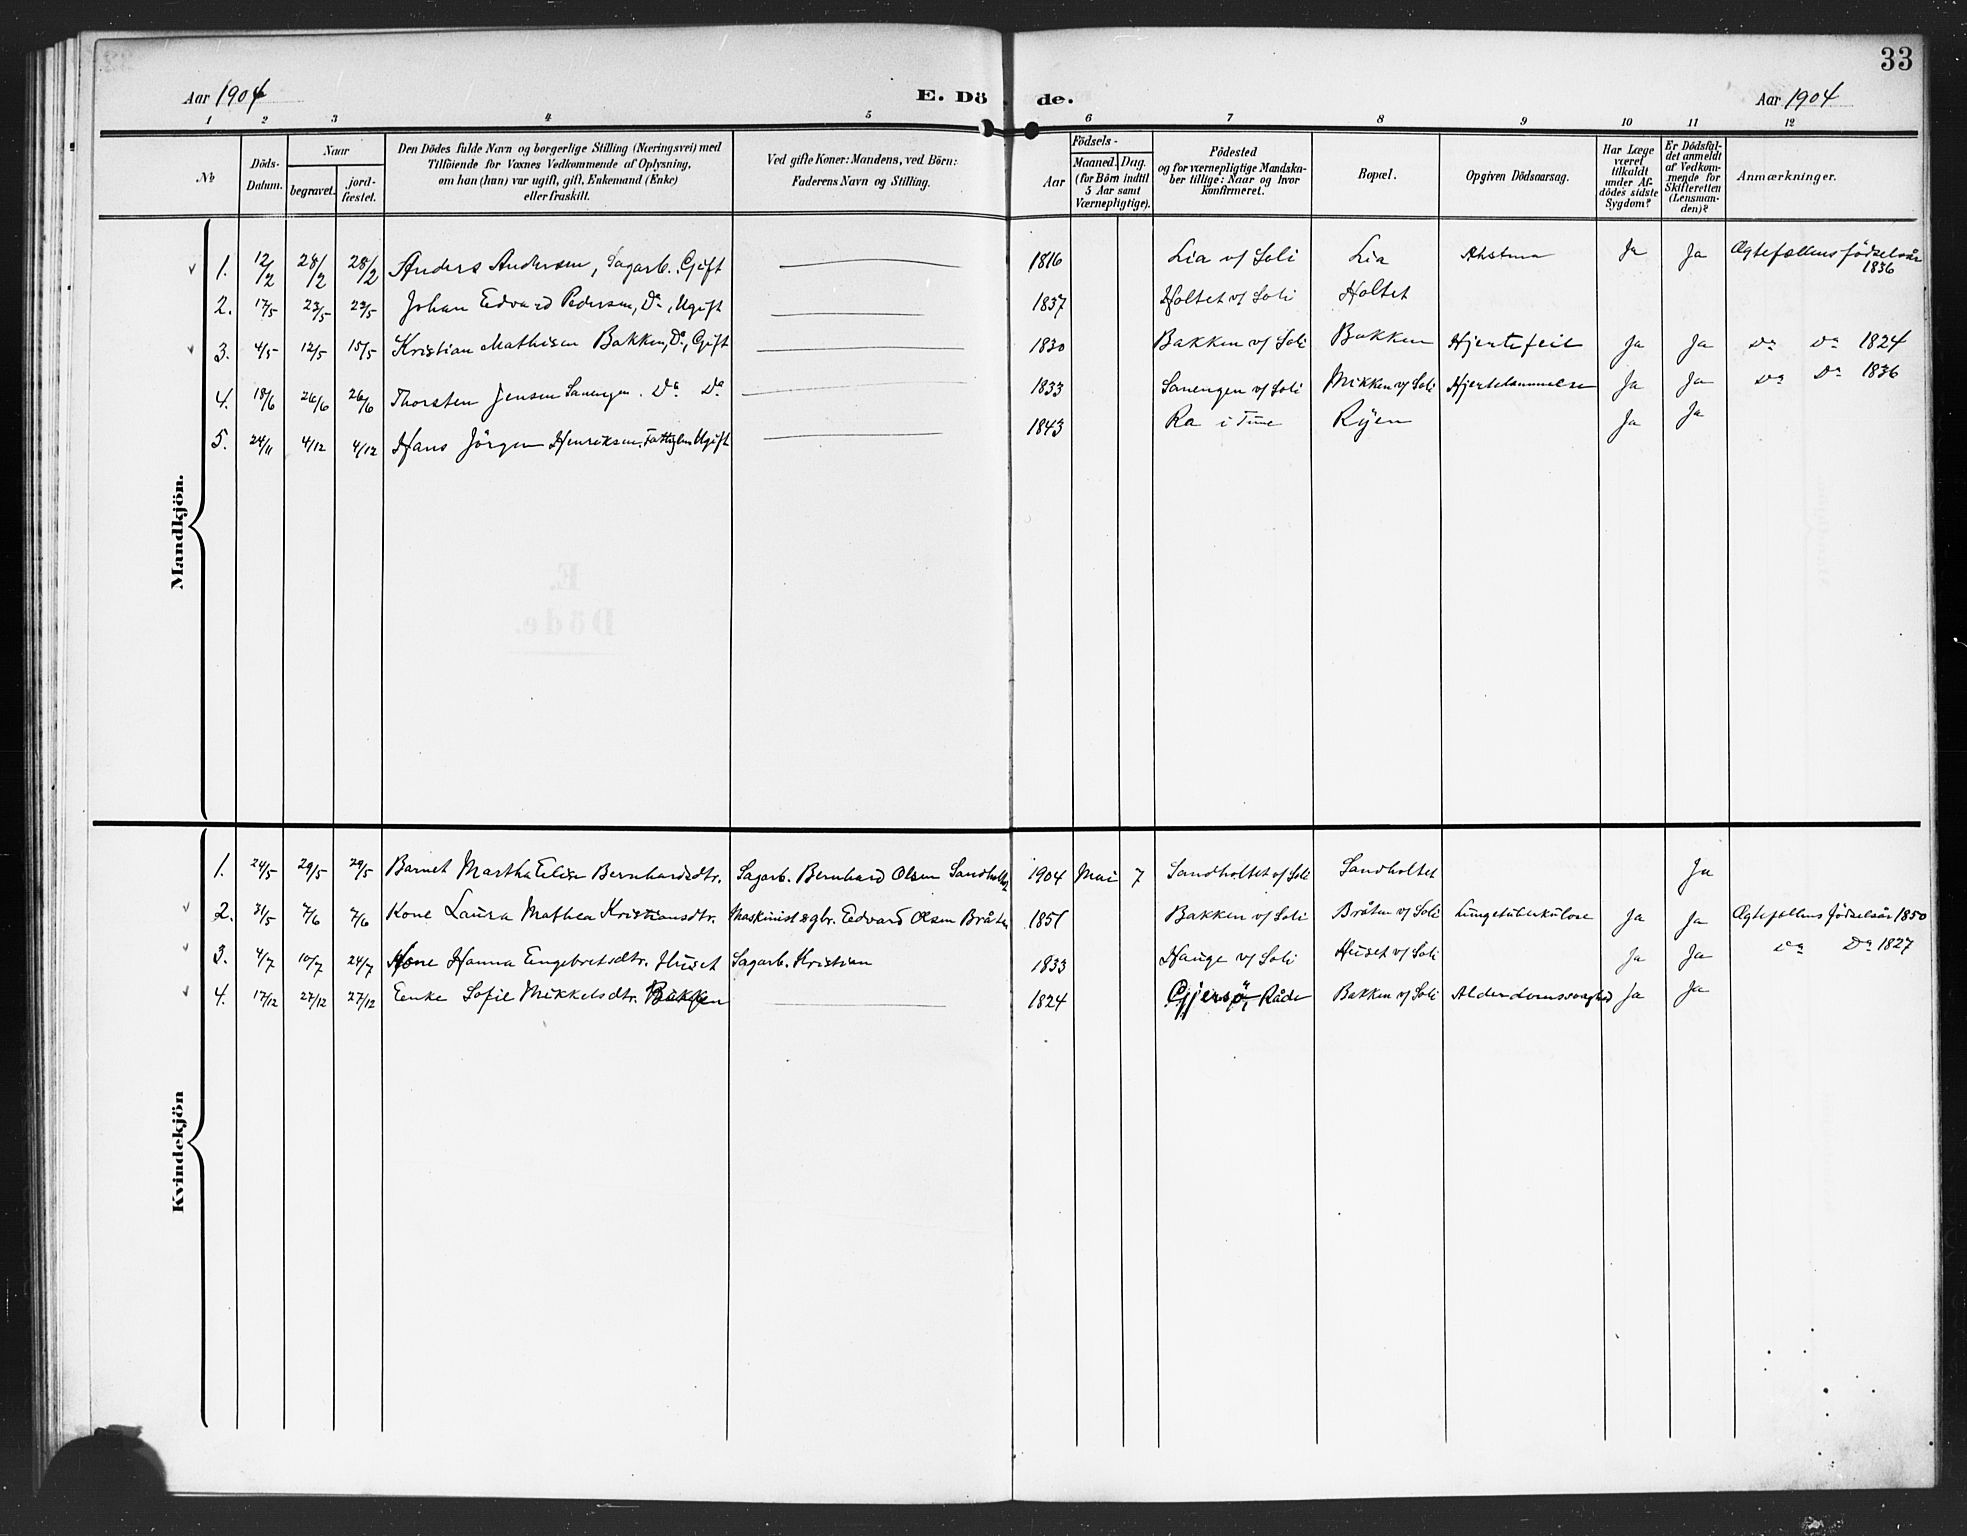 33
Aar 1904 E. Dö de. Aar 1904
1 2 3 4 5 6 7 8 9 10 11 12
No
Döds-Datum.
Naar
begravet. jord-fæstet.
Den Dödes fulde Navn og borgerlige Stilling (Næringsvei) med
Tilföiende for Voxnes Vedkommende af Oplysning,
om han (hun) var ugift, gift, Enkemand (Enke)
eller fraskilt.
Ved gifte Koner: Mandens, ved Börn:
Faderens Navn og Stilling.
Födsels-
Aar
Maaned. Dag.
(for Börn indtil
5 Aar samt
Værnepligtige).
Födested
og for værnepligtige Mandska-
ber tillige: Naar og hvor
konfirmeret.
Bopæl.
Opgiven Dödsaarsag.
Har Læge
været
tilkaldt
under Af-
dödes sidste
Sygdom?
Er Dödsfal-
det anmeldt
af Vedkom-
mende for
Skifteretten
(Lensman-
den)?
Anmærkninger.
Mandkjön.
1. 12/2 28/2 28/2 Anders Andersen, Sagarb., Gift 1816 Lia v/ Soli Lia Ahstma Ja Ja Ægtefællens födselsår 1836
2. 17/5 23/5 23/5 Johan Edvard Pedersen, Do, Ugift 1837 Holtet v/ Soli Holtet
3. 4/5 12/5 15/5 Kristian Mathisen Bakken, Do, Gift 1830 Bakken v/ Soli Bakken Hjertefeil Ja Ja Do Do 1824
4. 18/6 26/6 26/6 Thorsten Jensen Sanengen. Do Do 1833 Sanengen v/ Soli Mikken v/ Soli Hjertelammelse Ja Ja Do Do 1836
5. 24/11 4/12 4/12 Hans Jörgen Henriksen, Fattiglem Ugift 1843 Ra i Tune Ryen Ja Ja
E.
Döde.
Kvindekjön
1. 24/5 29/5 29/5 Barnet Martha Elise Bernhardsdtr. Sagarb. Bernhard Olsen Sandholtet 1904 Mai 7 Sandholtet v/ Soli Sandholtet Ja
2. 31/5 7/6 7/6 Kone Laura Mathea Kristiansdtr. Maskinist & gbr. Edvard Olsen Bråten 1851 Bakken v/ Soli Bråten v/ Soli Lungetuberkulose Ja Ja Ægtefællens födselsår 1850
3. 4/7 10/7 24/7 Kone Hanna Engebretsdtr. Huset Sagarb. Kristian 1833 Hauge v/ Soli Huset v/ Soli Ja Ja Do Do 1827
4. 17/12 27/12 27/12 Enke Sofie Mikkelsdtr. Bakken 1824 Gjersö, Råde Bakken v/ Soli Alderdomssvaghed Ja Ja